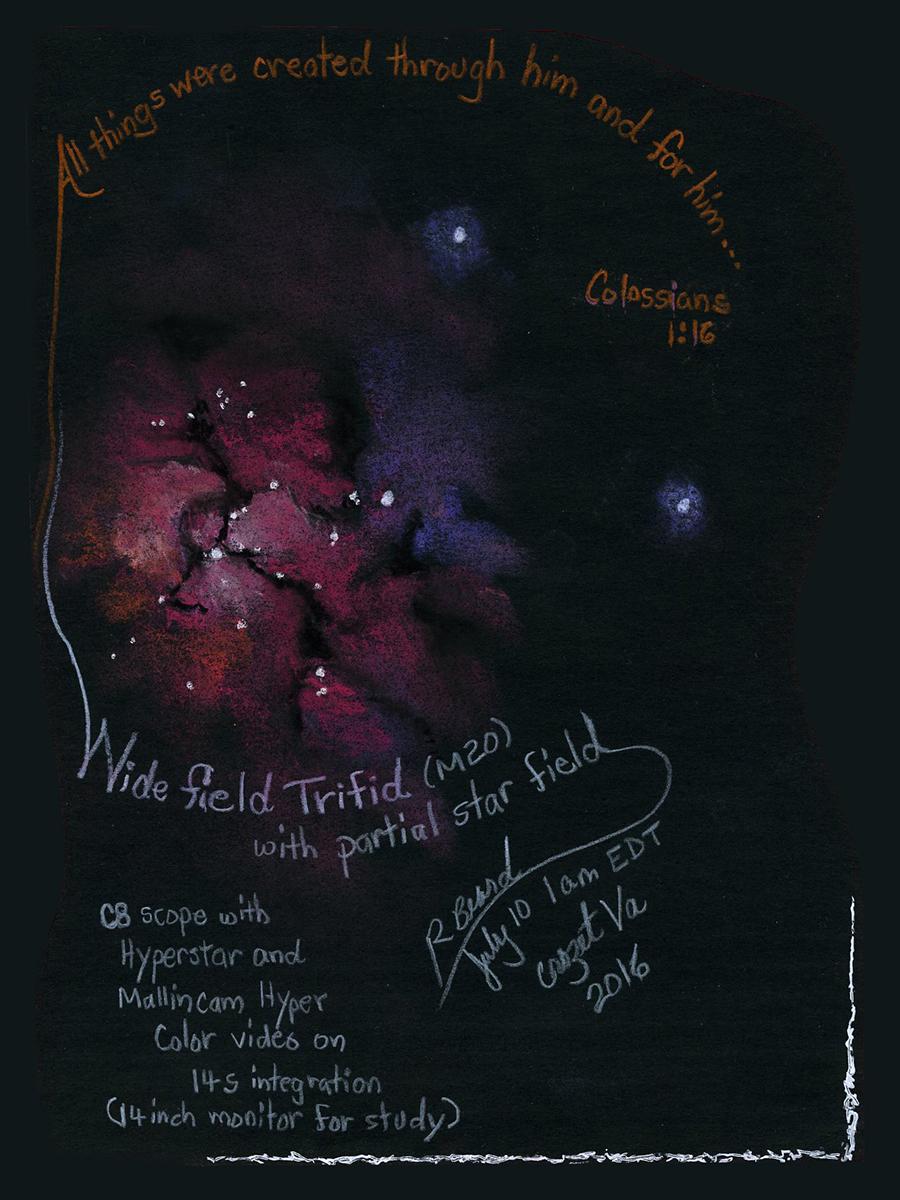 All things were created through him and for him...
Colossians
1:16
Wide field Trifid (M20)
with partial star field
R Beard
July 10 1am EDT
Crozet Va
2016
C8 scope with
Hyperstar and
Mallincam Hyper
Color video on
14s integration
(14inch monitor for study)